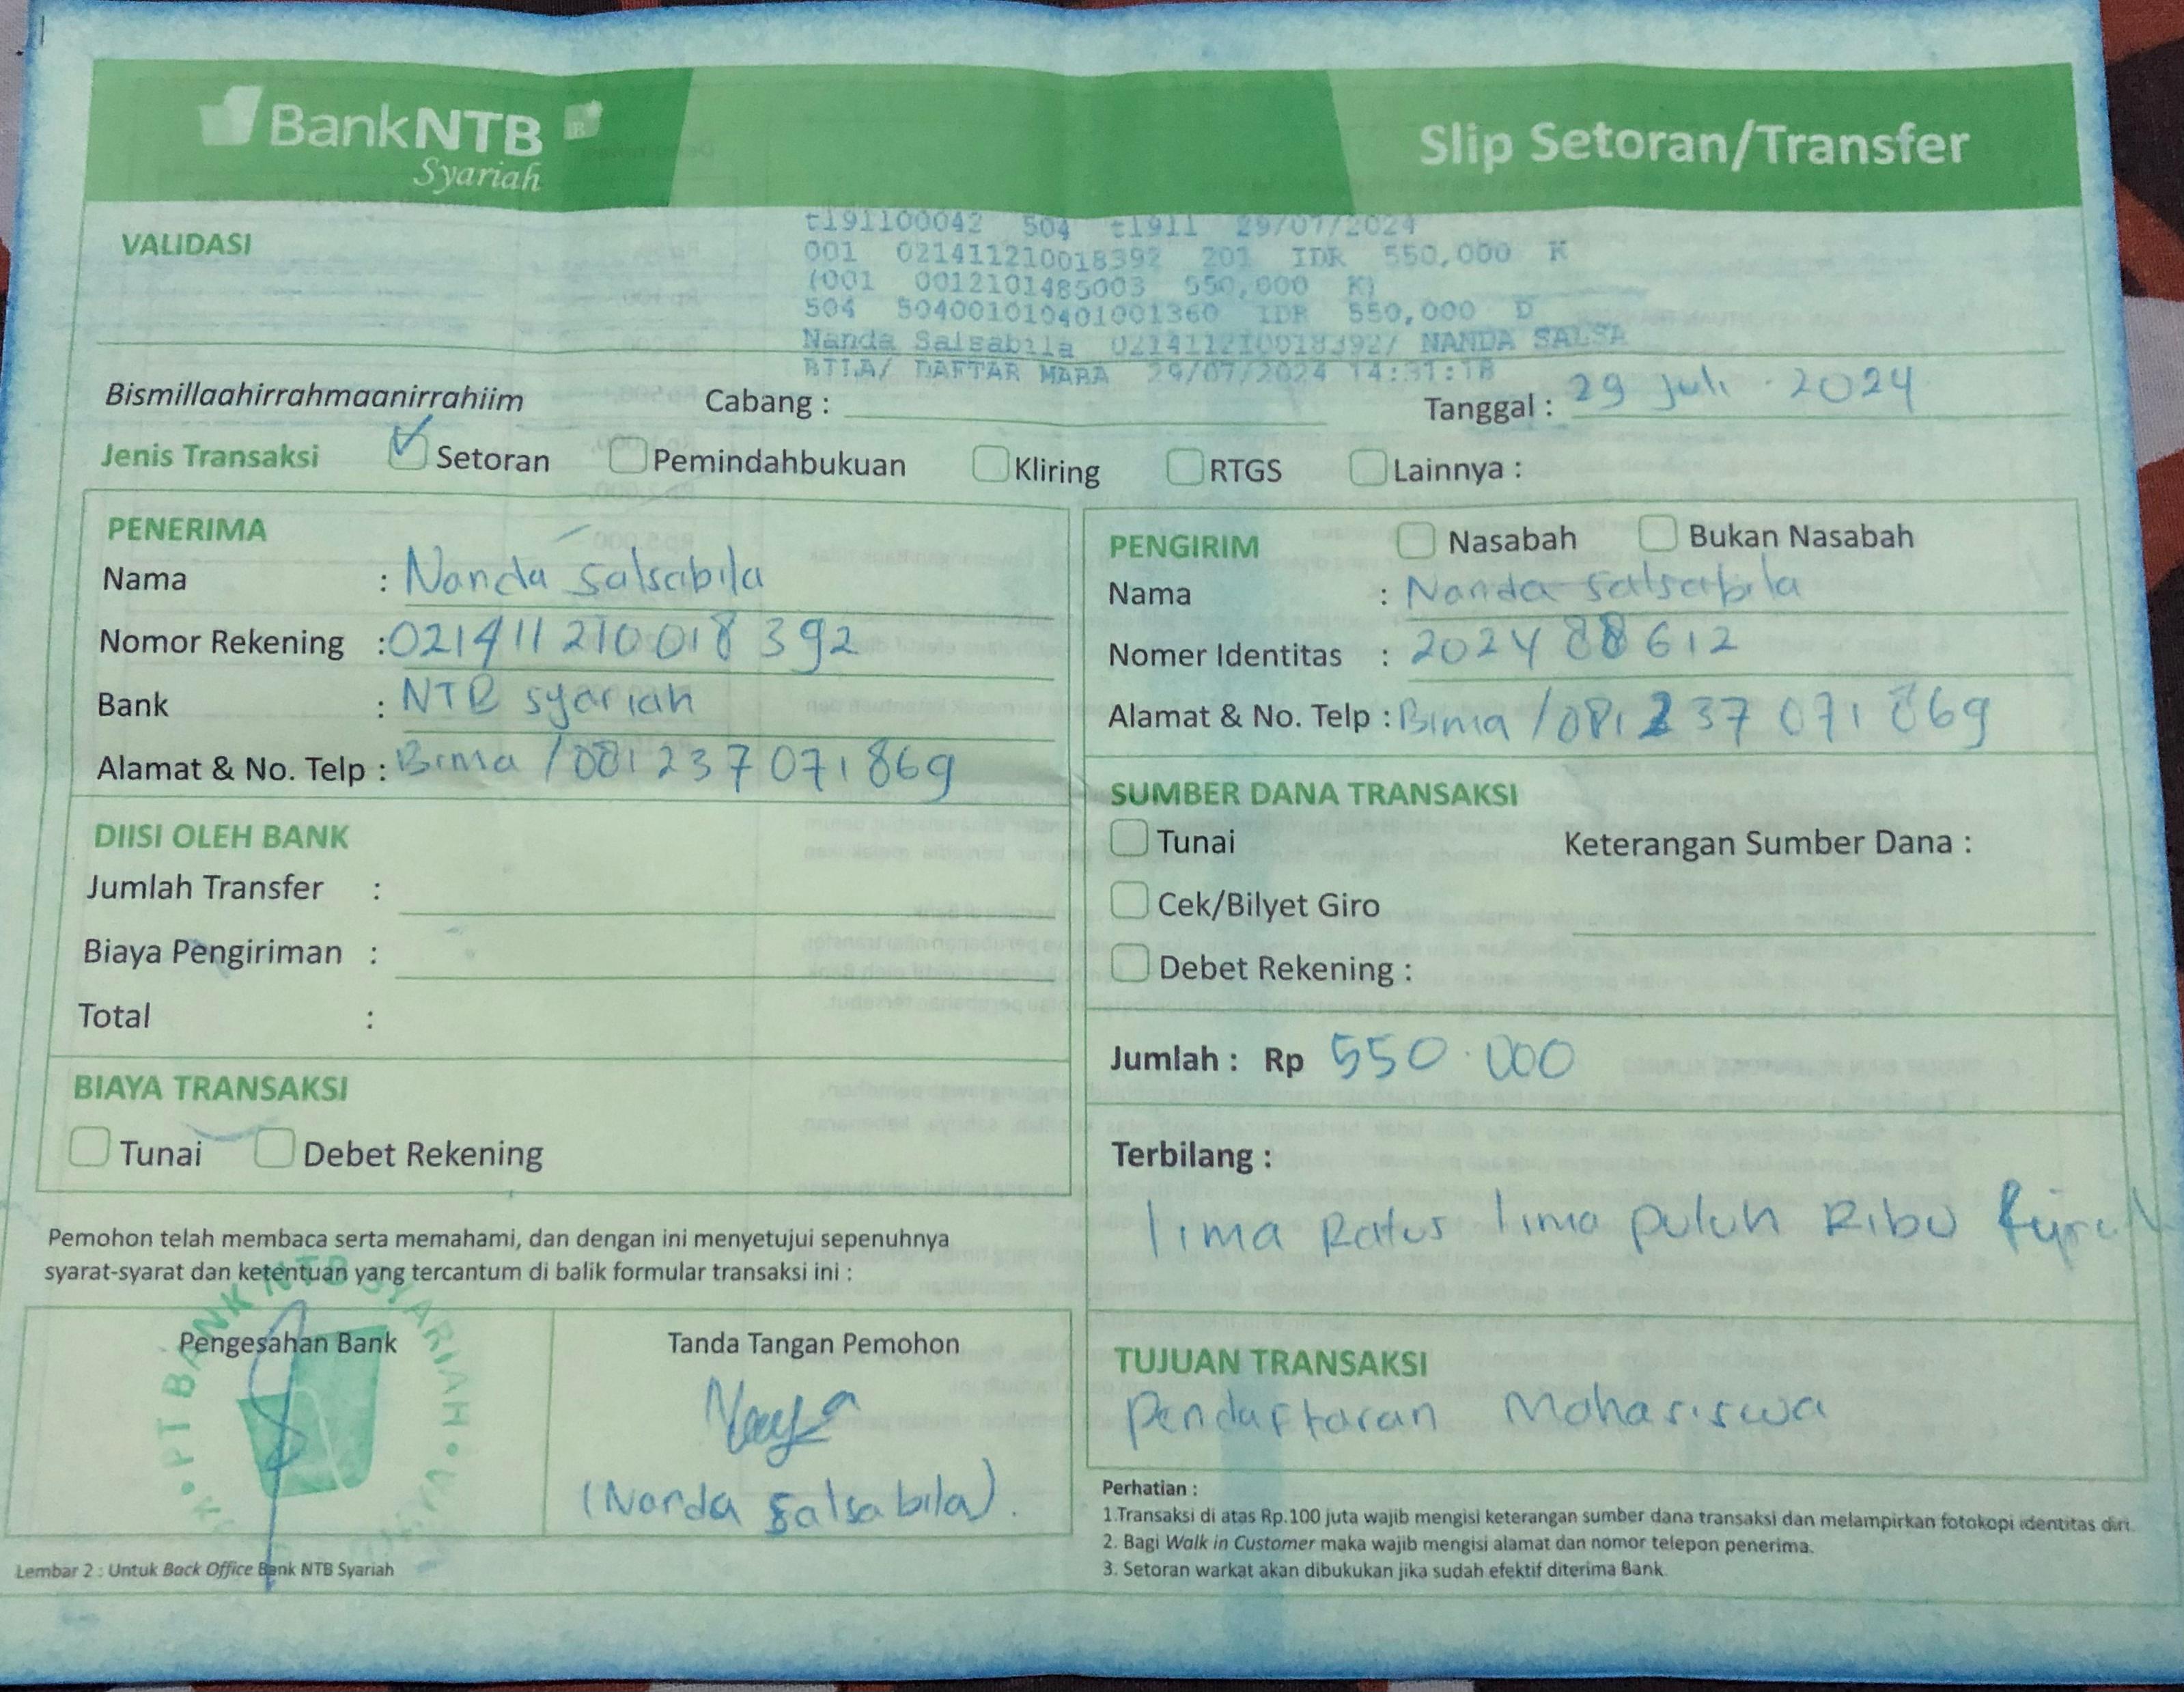 BankNTB
Syariah
Slip Setoran/Transfer
VALIDASI
t191100042 504 t1911 29/07/2024
001 021411210018392 201 IDR 550,000 K
(001 0012101485003 550,000 K)
504 504001010401001360 IDR 550,000 D
Nanda Salsabila 021411210018392/ NANDA SALSA
BILA/ DAFTAR MABA 29/07/2024 14:31:18
Bismillaahirrahmaanirrahiim
Cabang :
Tanggal : 29 juli 2024
Jenis Transaksi Setoran Pemindahbukuan Kliring RTGS Lainnya :
PENERIMA
Nama : Nanda Salsabila
Nomor Rekening : 021411210018392
Bank : NTB syariah
Alamat & No. Telp : Bima /081237071869
DIISI OLEH BANK
Jumlah Transfer :
Biaya Pengiriman :
Total :
BIAYA TRANSAKSI
Tunai Debet Rekening
Pemohon telah membaca serta memahami, dan dengan ini menyetujui sepenuhnya
syarat-syarat dan ketentuan yang tercantum di balik formular transaksi ini :
Pengesahan Bank
PT BANK NTB SYARIAH
Tanda Tangan Pemohon
(Nanda Salsabila).
Lembar 2 : Untuk Back Office Bank NTB Syariah
PENGIRIM Nasabah Bukan Nasabah
Nama : Nanda Salsabila
Nomer Identitas : 202488612
Alamat & No. Telp : Bima /081237071869
SUMBER DANA TRANSAKSI
Tunai Keterangan Sumber Dana :
Cek/Bilyet Giro
Debet Rekening :
Jumlah : Rp 550.000
Terbilang :
lima Ratus lima puluh Ribu
TUJUAN TRANSAKSI
Pendaftaran Mahasiswa
Perhatian :
1.Transaksi di atas Rp.100 juta wajib mengisi keterangan sumber dana transaksi dan melampirkan fotokopi identitas diri.
2. Bagi Walk in Customer maka wajib mengisi alamat dan nomor telepon penerima.
3. Setoran warkat akan dibukukan jika sudah efektif diterima Bank.